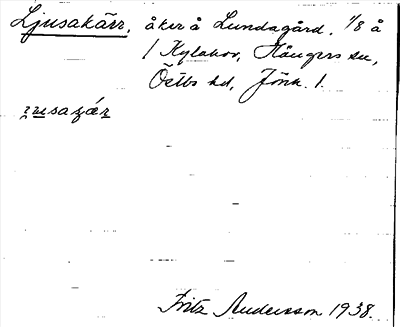 Ljusakärr, åker å Lundagård, 1/8 å
1 Kylahov, Kångers sn,
Östbo hd, Jönk. l.
Fritz Andersson 1938.